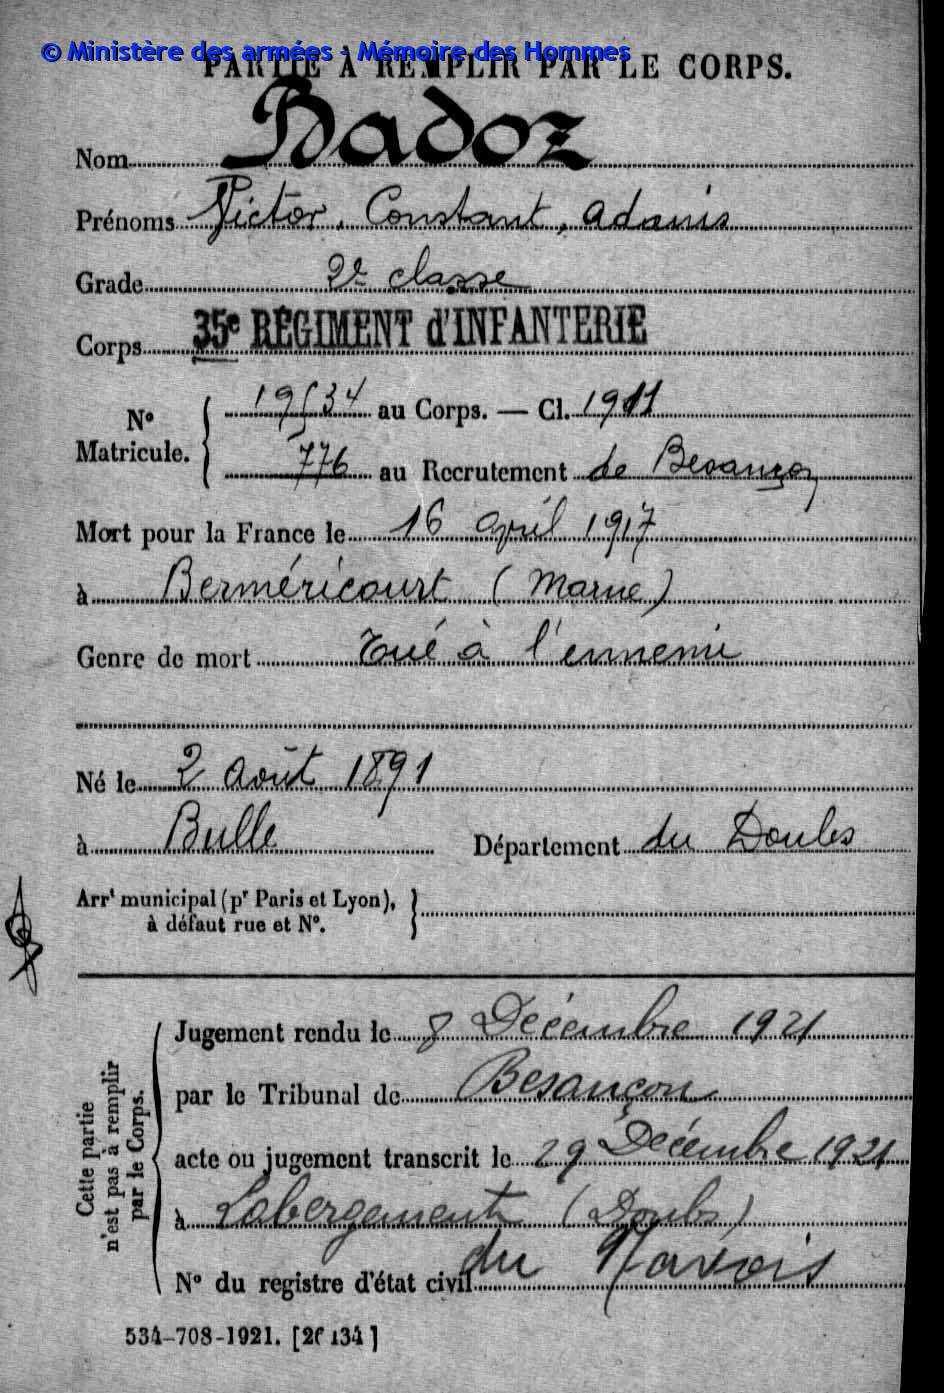 © Ministère des armées - Mémoire des Hommes
PARTIE À REMPLIR PAR LE CORPS.
Nom Badoz
Prénoms Victor, Constant, Adonis
Grade 2e classe
Corps 35e RÉGIMENT d'INFANTERIE
N° Matricule. { 19534 au Corps. — Cl. 1911
776 au Recrutement de Besançon
Mort pour la France le 16 avril 1917
à Berméricourt (Marne)
Genre de mort Tué à l'ennemi
Né le 2 août 1891
à Bulle Département du Doubs
Arrt municipal (pr Paris et Lyon), }
à défaut rue et N°.
Cette partie n'est pas à remplir par le Corps.
Jugement rendu le 8 Décembre 1921
par le Tribunal de Besançon
acte ou jugement transcrit le 29 Décembre 1921
à Labergement (Doubs)
N° du registre d'état civil du Navois
534-708-1921. [26134]